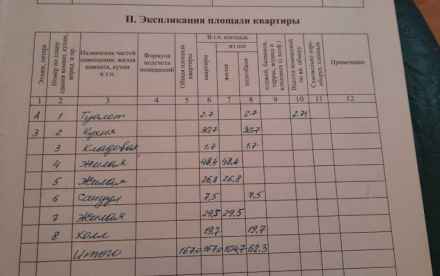 II. Экспликация площади квартиры
В т.ч. площадь
из нее
Этажи, литера
Номер по плану
Назначение частей
помещения: жилая
комната, кухня
и т.п.
Формула
подсчета
помещений
Общая площадь
квартиры
квартиры
жилая
подсобная
Высота помещений
по вн. обмеру
Примечание
1 2 3 4 5 6 7 8 9 10 11 12
А 1 Туалет 2.7 2.7 2.71
3 2 Кухня 30.7 30.7
3 Кладовая 1.7 1.7
4 Жилая 48,4 48,4
5 Жилая 26,8 26,8
6 Санузл 7,5 7,5
7 Жилая 29,5 29,5
8 Холл 19,7 19,7
Итого 167.0 167.0 104,7 62,3